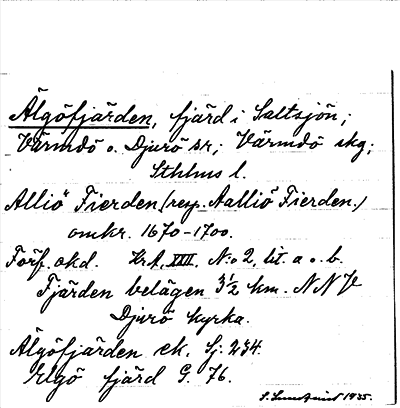 Älgöfjärden, fjärd i Saltsjön;
Värmdö o. Djurö sr; Värmdö skg;
Sthlms l.
Alliö Fierden (resp. Aalliö Fierden.)
omkr. 1670-1700.
Förf. okd. Kr.A. XIII. N:o 2, lit. a o. b.
Fjärden belägen 3½ km. NNV
Djurö kyrka.
Älgöfjärden ek. Sj. 234.
Elgö fjärd G. 76.
1935.